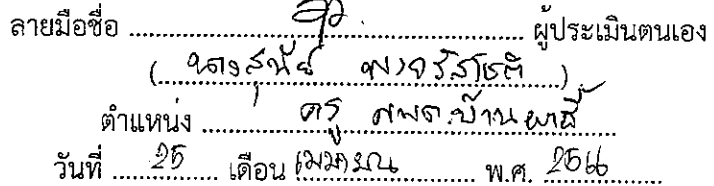 ลายมือชื่อ ............ ผู้ประเมินตนเอง
(นางสุนัย์ )
ตำแหน่ง ครู ศพด.บ้านผาสี
วันที่ 25 เดือน เมษายน พ.ศ. 2566